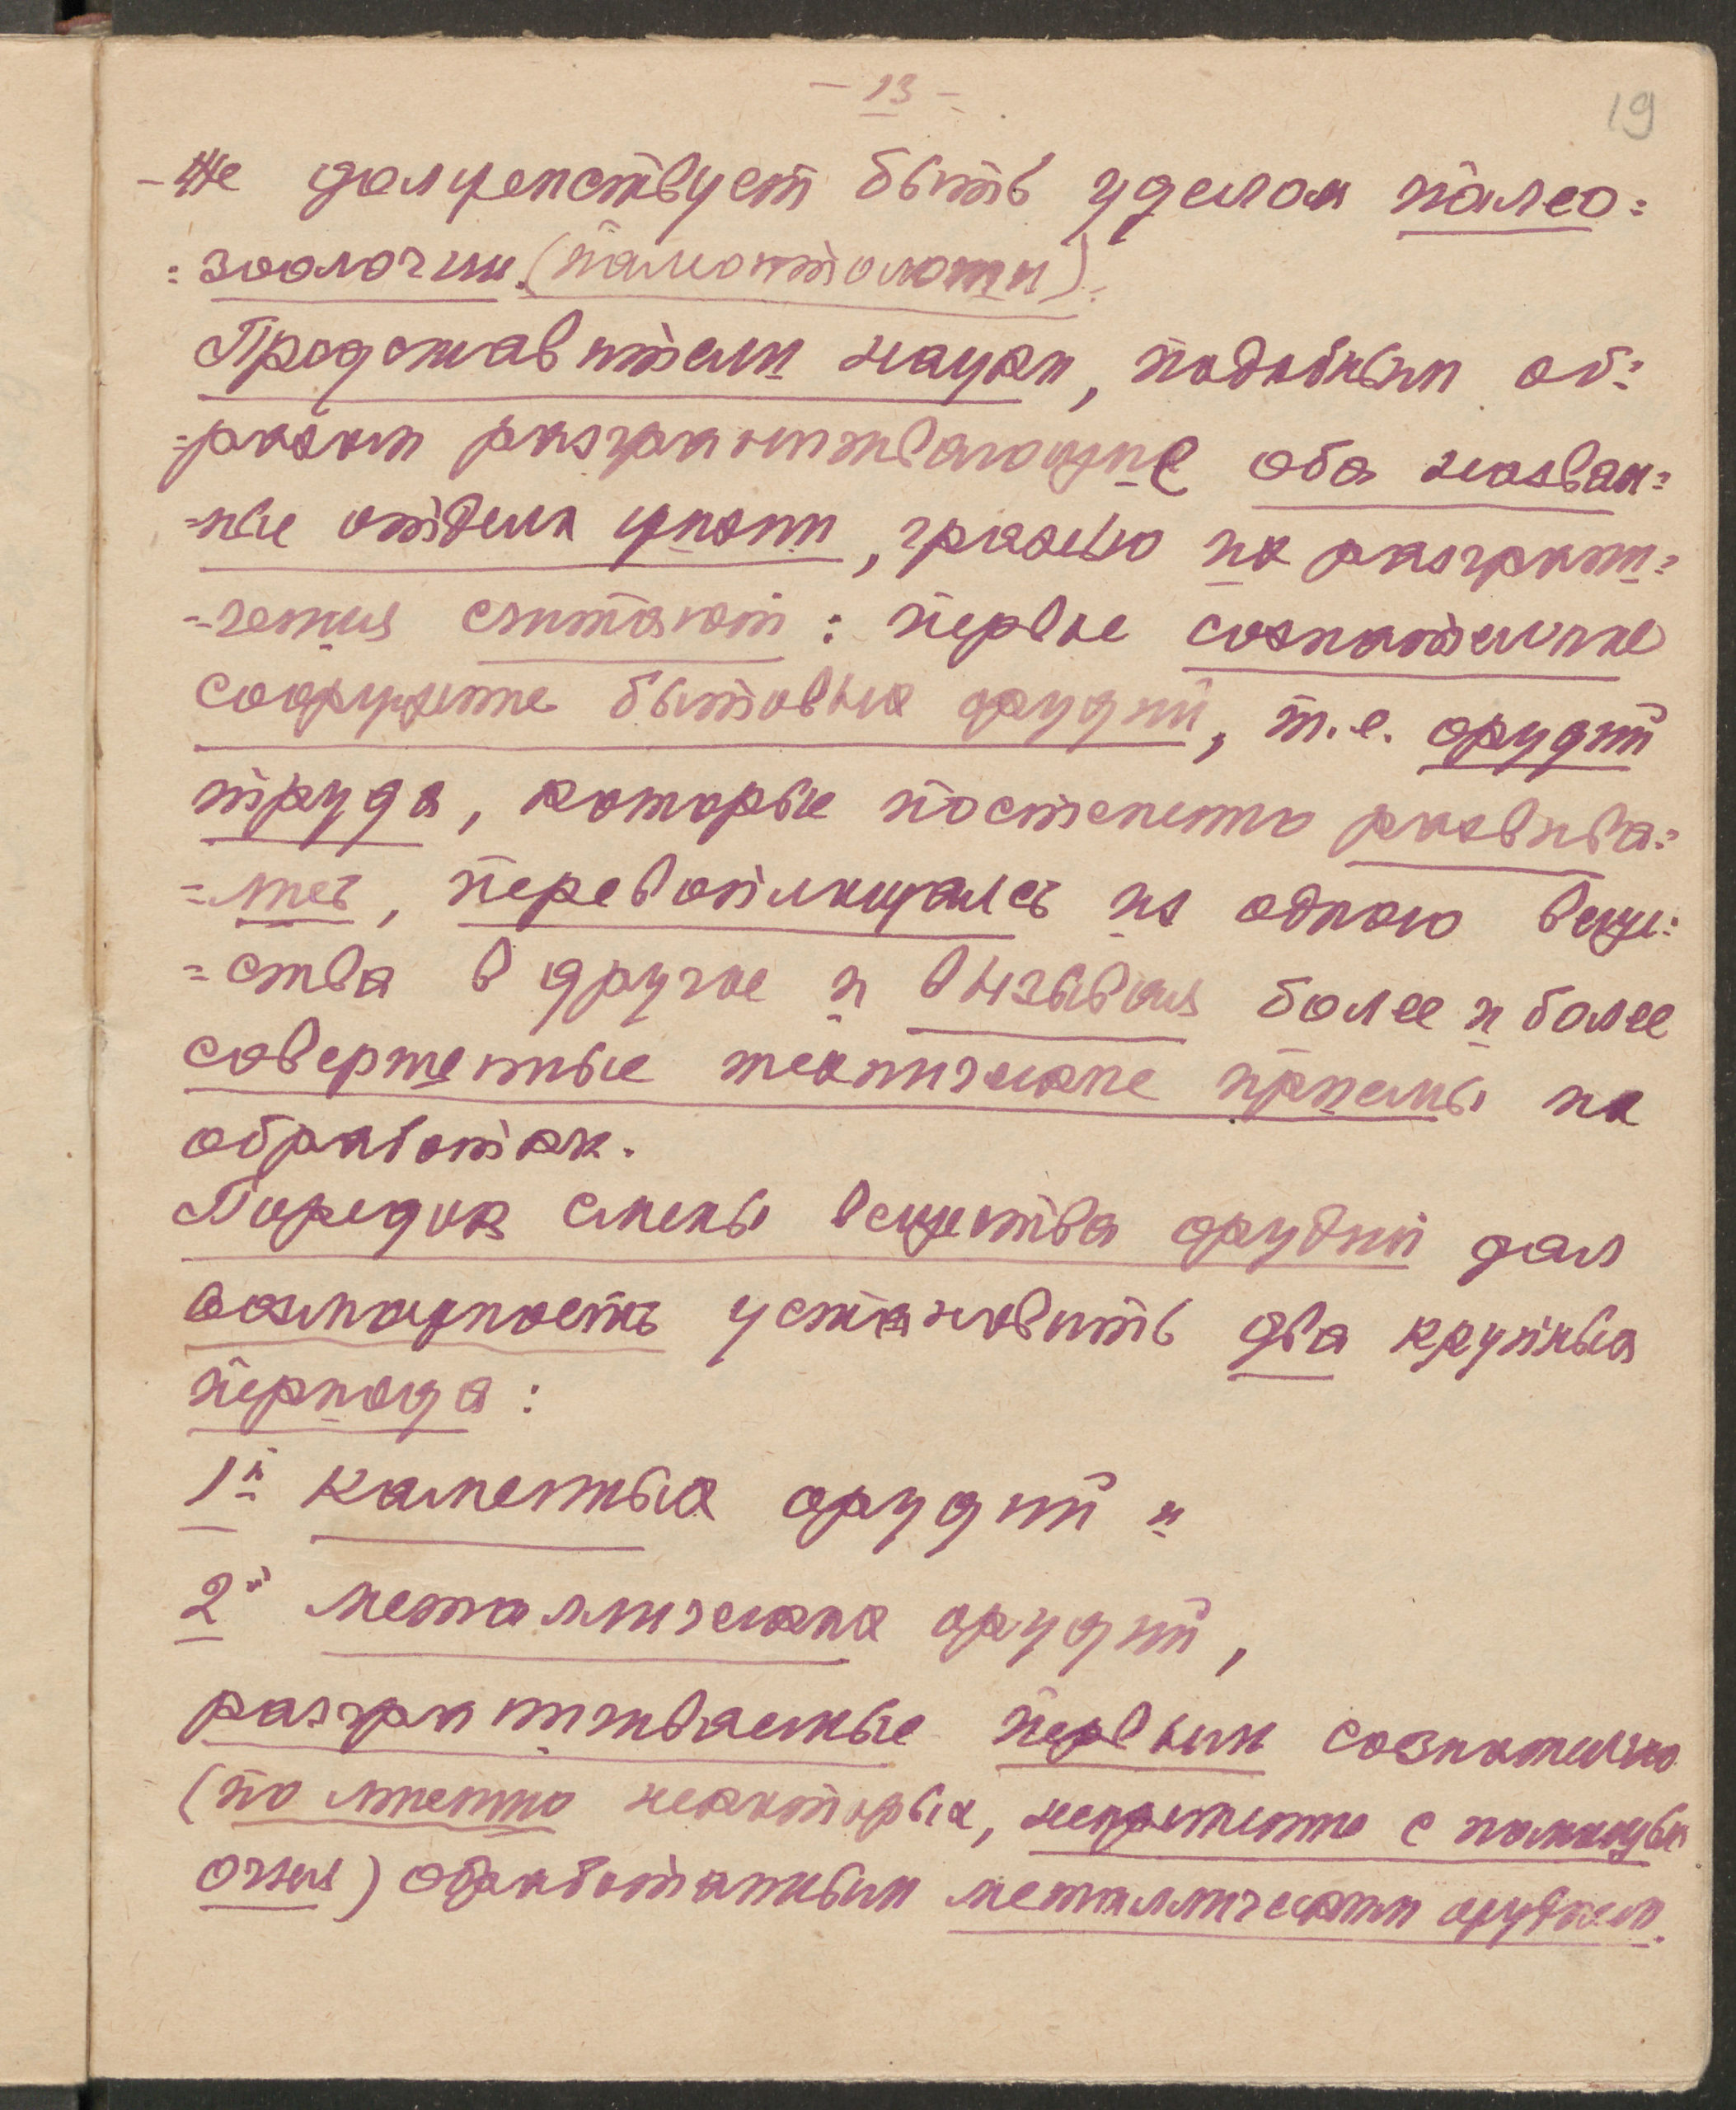 - 13 -
19
- Же долженствует быть уделом палео=
=зоологии (палеонтологии).
Представители науки, подобным об=
=разом разграничивающие оба назван=
=ные отдела жизни, гранью их разграни=
=чения считают: первое сознательное
сооружение бытовых орудий, т.е. орудий
труда, которые постепенно развива=
=лись, перевоплощаясь из одного веще=
=ства в другое и вызывая более и более
совершенные технические приемы их
обработки.
Порядок смены вещества орудий дал
возможность установить два крупных
периода:
1й каменных орудий и
2й металлических орудий,
разграничиваемые первым сознательно
(по мнению некоторых, непременно с помощью
огня) обработанным металлическим орудием.